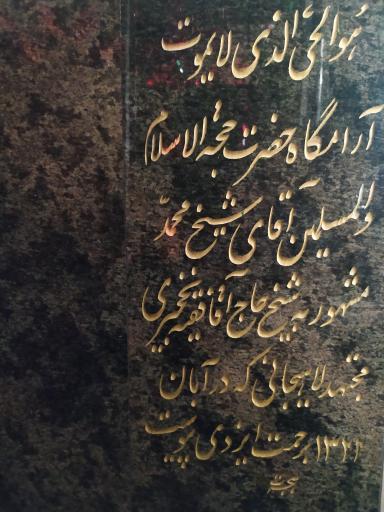 هوالحی الذی لایموت
آرامگاه حضرت حجة الاسلام
والمسلمین آقای شیخ محمد
مشهور به شیخ حاج آقا فقیه نخجیری
مجتهد لاهیجانی که در آبان
۱۳۲۱ برحمت ایزدی پیوست